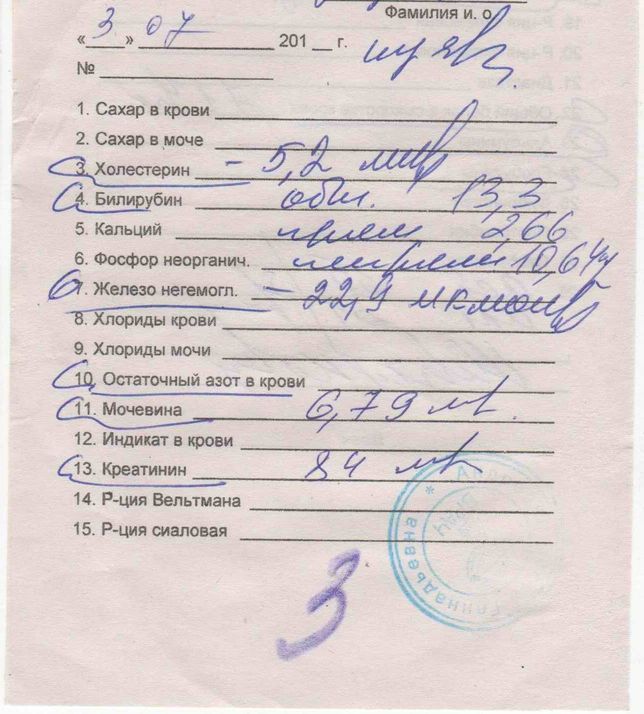 Фамилия и. о.
«3» 07 201 г.
№
1. Сахар в крови
2. Сахар в моче
3. Холестерин - 5,2
4. Билирубин общ. 13,3
5. Кальций прям 2,66
6. Фосфор неорганич. непрям 10,64
7. Железо негемогл. - 22,9 мкмоль
8. Хлориды крови
9. Хлориды мочи
10. Остаточный азот в крови
11. Мочевина 6,79
12. Индикат в крови
13. Креатинин 84
14. Р-ция Вельтмана
15. Р-ция сиаловая
3